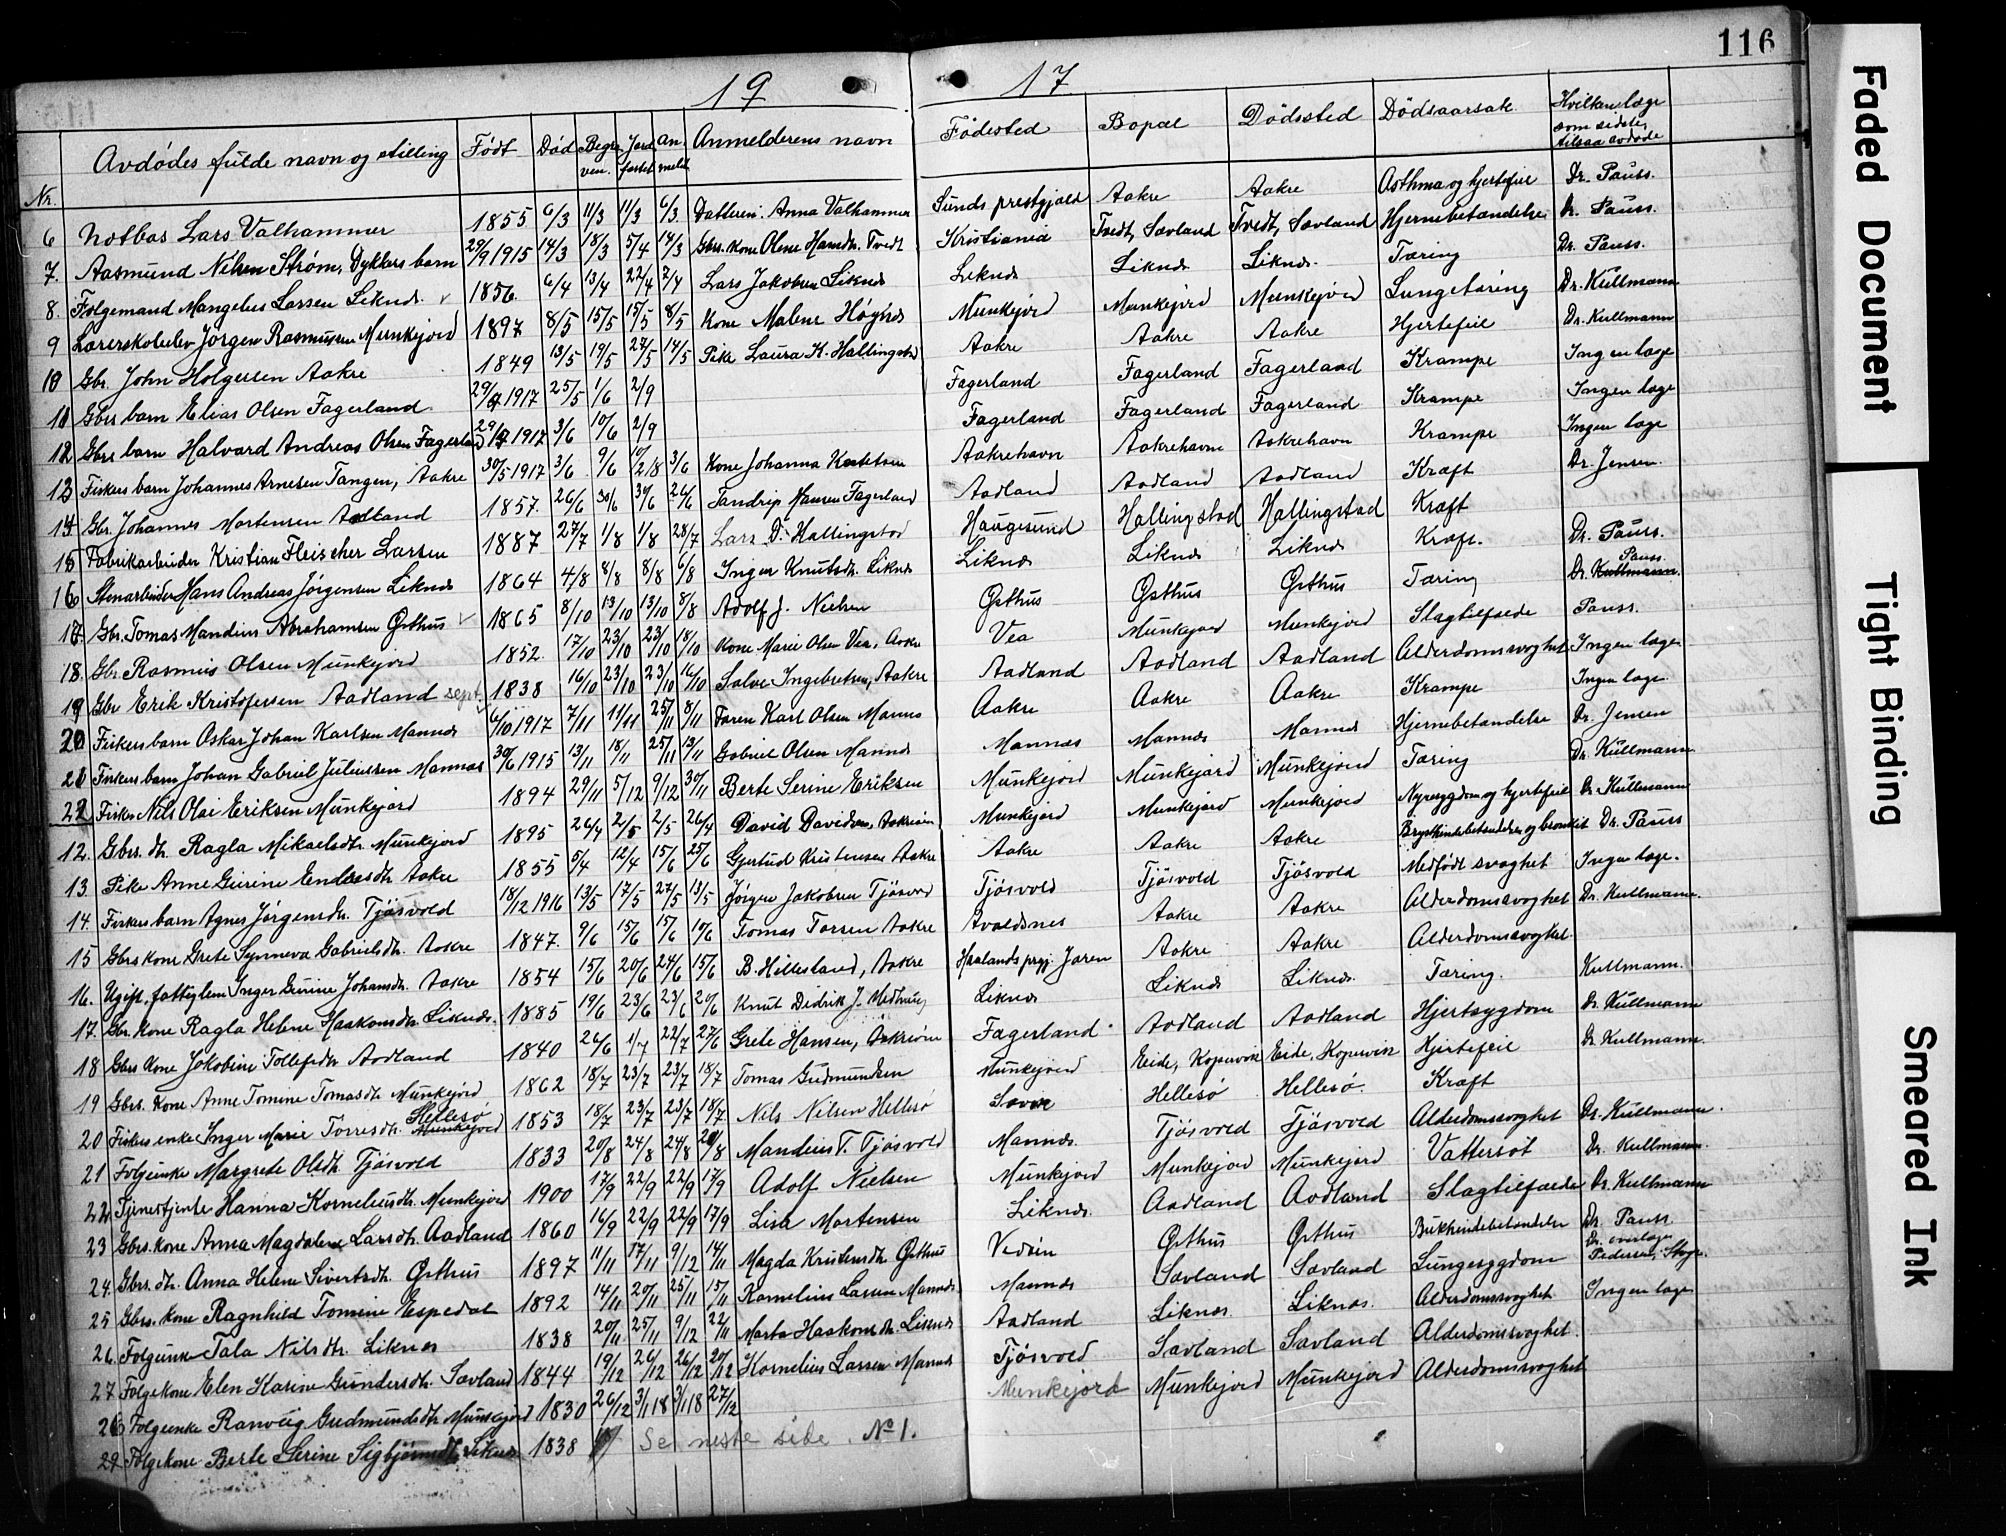 116
19 17
Nr. Avdødes fulde navn og stilling Født Død Begra ven. Jord festet An meldt Anmelderens navn Fødested Bopæl Dødssted Dødsaarsak Hvilken læge som sidst tilsaa avdøde
6 Notbas Lars Valhammer 1855 6/3 11/3 11/3 6/3 Datteren Anna Valhammer Sunds prestgjæld Aakre Aakre Asthma og hjertefeil Dr. Pauss.
7. Aasmund Nilsen Strøm, Dykkers barn 29/9 1915 14/3 18/3 5/4 14/3 Gbrs. kone Olene Hansdtr. Tvedt Kristiania Tvedt, Sævland Tvedt, Sævland Hjernebetændelse Dr. Pauss.
8. Følgemand Mangelus Larsen Liknes. 1856. 6/4 13/4 22/4 7/4 Lars Jakobsen Liknes Liknes Liknes Liknes. Tæring Dr. Pauss.
9 Lærerskoleelev Jørgen Rasmussen Munkejord 1897 8/5 15/5 15/5 8/5 Kone Malene Høynes Munkejord Munkejord Munkejord Lungetæring Dr. Kullmann
10 Gbr. John Holgersen Aakre 1849 13/5 19/5 27/5 14/5 Pike Laura K. Hallingstad Aakre Aakre Aakre Hjertefeil Dr. Kullmann
11 Gbrs barn Elias Olsen Fagerland 1917 25/5 1/6 2/9 Fagerland Fagerland Fagerland Krampe Ingen læge
12 Gbrs barn Halvard Andreas Olsen Fagerland 1917 3/6 10/6 2/9 Fagerland Fagerland Fagerland Krampe Ingen læge
13 Fiskers barn Johannes Arnesen Tangen, Aakre 30/5 1917 3/6 9/6 3/6 Kone Johanna Aakrehavn Aakrehavn Aakrehavn Krampe Ingen læge
14 Gbr. Johannes Mortensen Aadland 1857. 26/6 30/6 30/6 26/6 Tandrip Hansen Fagerland Aadland Aadland Aadland Kræft Dr. Jensen.
15 Fabrikarbeider Kristian Fleischer Larsen 1887 27/7 1/8 1/8 28/7 Lars D. Hallingstad Haugesund Hallingstad Hallingstad Kræft
16 Stenarbeider Hans Andreas Jørgensen Liknes 1864 4/8 8/8 8/8 6/8 Inger Knutsdtr. Liknes Liknes Liknes Liknes Kræft. Dr. Pauss.
17. Gbr. Tomas Mandius Abrahamsen Østhus 1865 8/10 13/10 13/10 8/8 Adolf J. Nielsen Østhus Østhus Østhus Tæring Dr. Kullmann. Pauss.
18. Gbr Rasmus Olsen Munkejord 1852. 17/10 23/10 23/10 18/10 Kone Marie Olsen Vea, Aakre Vea Munkejord Munkejord Slagtilfælde Pauss.
19 Gbr Erik Kristofersen Aadland 1838 16/10 23/10 23/10 16/10 Salve Ingebretsen, Aakre Aadland Aadland Aadland Alderdomssvaghet Ingen læge
20 Fiskers barn Oskar Johan Karlsen Mannes 6/10 1917 7/11 11/11 25/11 8/11 Faren Karl Olsen Mannes Aakre Aakre Aakre Krampe Ingen læge.
21 Fiskers barn Johan Gabriel Juliussen Mannes 30/6 1915 13/11 18/11 25/11 13/11 Gabriel Olsen Mannes Mannes Mannes Mannes Hjernebetændelse Dr. Jensen
22 Fisker Nils Olai Eriksen Munkejord 1894 29/11 5/12 9/12 30/11 Berte Serine Eriksen Munkejord Munkejord Munkejord Tæring Dr. Kullmann
12. Gbrs. dtr. Ragla Mikaelsdtr. Munkejord 1895 26/4 2/5 2/5 26/4 David Davidsen, Munkejord Munkejord Munkejord Nyresygdom og hjertefeil Dr. Kullmann
13 Pike Anne Gurine Endresdtr Aakre 1855 5/4 12/4 15/6 25/6 Gjertud Kristensen Aakre Aakre Aakre Aakre Brysthindebetændelse og bronkit Dr. Pauss
14. Fiskers barn Agnes Jørgensdtr. Tjøsvold 18/12 1916 13/5 17/5 27/5 13/5 Jørgen Jakobsen Tjøsvold Tjøsvold Tjøsvold Tjøsvold Medfødt svaghet Ingen læge.
15 Gbrs kone Grete Synneva Gabrielsdtr. Aakre 1847. 9/6 15/6 15/6 10/6 Tomas Torsen Aakre Avaldsnes Aakre Aakre Alderdomssvaghet Dr. Kullmann.
16. Ugift. fattiglem Inger Gurine Johansdtr. Aakre 1854 15/6 20/6 24/6 15/6 B. Hillesland, Aakre Haalands prgj. Jæren Aakre Aakre Alderdomssvaghet.
17. Gbr. kone Ragla Helene Haakonsdtr. Liknes. 1885 19/6 23/6 23/6 20/6 Knut Didrik J. Liknes Liknes Liknes. Tæring. Kullmann.
18 Gbrs kone Jakobine Tollefsdtr Aadland 1840 26/6 1/7 22/7 27/6 Grete Hansen, Fagerland Aadland Aadland Hjertesygdom Dr. Kullmann
19 Gbrs. kone Anne Tomine Tomasdtr Munkejord 1862 18/7 23/7 23/7 18/7 Tomas Gudmundsen Munkejord Eide, Kopervik Eide, Kopervik Hjertefeil Dr. Kullmann.
20 Fiskers enke Inger Marie Torresdtr. Munkejord Hellesø 1853 18/7 23/7 23/7 18/7 Nils Nilsen Hellesø Hellesø Hellesø. Kræft
21 Følgeenke Margrete Olsdtr. Tjøsvold 1833 20/8 24/8 24/8 20/8 Mandeius T. Tjøsvold Mannes. Tjøsvold Tjøsvold Alderdomssvaghet Dr. Kullmann.
22 Tjenestjente Hanna Korneliusdtr. Munkejord 1900 17/9 22/9 22/9 17/9 Adolf Nielsen Munkejord Munkejord Munkejord Vattersot Dr. Kullmann.
23 Gbrs. kone Anna Magdalene Larsdtr. Aadland 1860 16/9 22/9 22/9 17/9 Lisa Mortensen Liknes. Aadland Aadland Slagtilfælde Dr. Kullmann
24. Gbrs. dtr. Anna Helene Sivertsdtr. Østhus 1897 11/11 17/11 9/12 14/11 Magda Kristensdtr. Østhus Vedøen Østhus Østhus Bukhindebetændelse Dr. Pauss.
25 Gbrs. kone Ragnhild Tomine Espedal 1892 14/11 20/11 25/11 15/11 Kornelius Larsen Mannes Mannes Sævland Sævland Lungesygdom Dr. overlæge Pedersen,
26. Følgeenke Tala Nilsdtr. Liknes 1838 20/11 25/11 9/12 22/11 Marta Haakonsdtr. Liknes Aadland Liknes. Liknes. Alderdomssvaghet Ingen læge
27 Følgekone Elen Karine Gundersdtr. Sævland 1844 19/12 26/12 26/12 20/12 Kornelius Larsen Mannes Tjøsvold Sævland Sævland Alderdomssvaghet.
28 Følgeenke Ranveig Gudmundsdtr. Munkejord 1830 26/12 3/1 18 3/1 18 27/12 Munkejord Munkejord Munkejord Alderdomssvaghet
29 Følgekone Berte Serine Sigbjørnsdtr. Liknes 1838 Se neste side. No 1.
Faded Document
Tight Binding
Smeared Ink